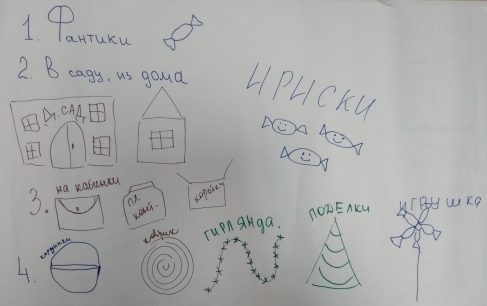 1. Фантики
2. В саду, из дома
ИРИСКИ
Д. САД
3. на кабинки
пл. конт.
коробку
4. корзинки
коврик
ГИРЛЯНДА.
ПОДЕЛКИ
ИГРУШКА